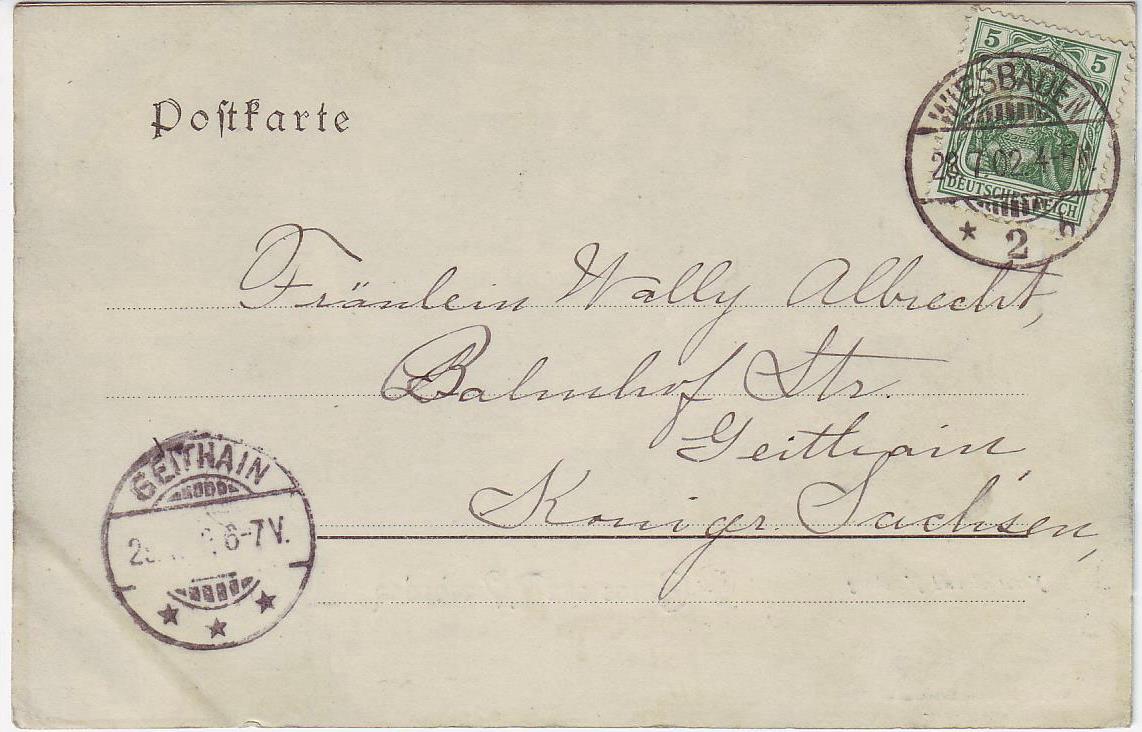 Postkarte
5 5
DEUTSCHES REICH
WIESBADEN
7.02. 4-5N.
* 2 b
Fräulein Wally Albrecht,
Bahnhof Str.
Geithain,
Königr. Sachsen,
GEITHAIN
6-7V.